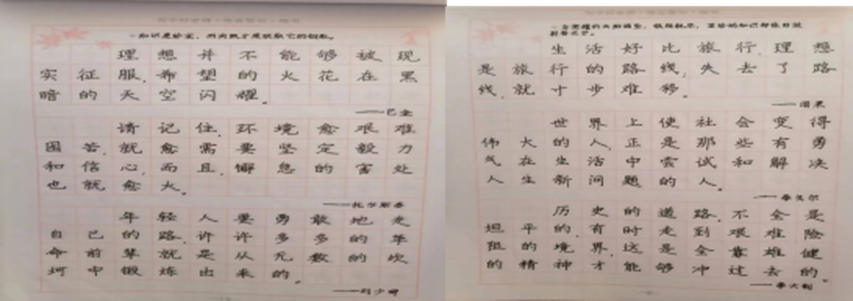 知识是珍宝，而实践才是获取它的钥匙。
理想并不能够被现
实征服，希望的火花在黑
暗的天空闪耀。
——巴金
请记住，环境愈艰难
困苦，就愈需要坚定毅力
和信心，而且，懈怠的害处
也就愈大。
——托尔斯泰
年轻人要勇敢地走
自己的路，许许多多的革
命前辈就是从无数的坎
坷中锻炼出来的。
生活好比旅行，理想
是旅行的路线，失去了路
线，就十步难移。
——雨果
世界上使社会变得
伟大的人，正是那些有勇
气在生活中尝试和解决
人生新问题的人。
——泰戈尔
历史的道路，不全是
坦平的，有时走到艰难险
阻的境界，这是全靠雄健
的精神才能够冲过去的。
——李大钊